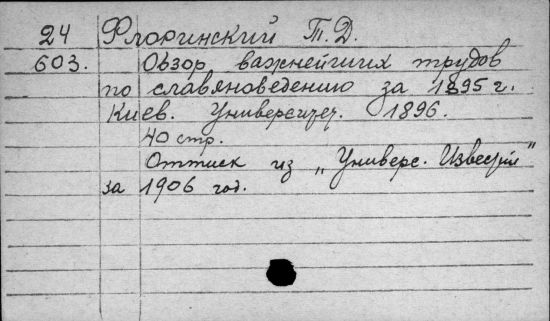 24 Флоринский Т. Д.
603. Обзор важнейших трудов
по славяноведению за 1895 г.
Киев. Университ. 1896.
40 стр.
Оттиск из „Универс. Известий"
за 1906 год.